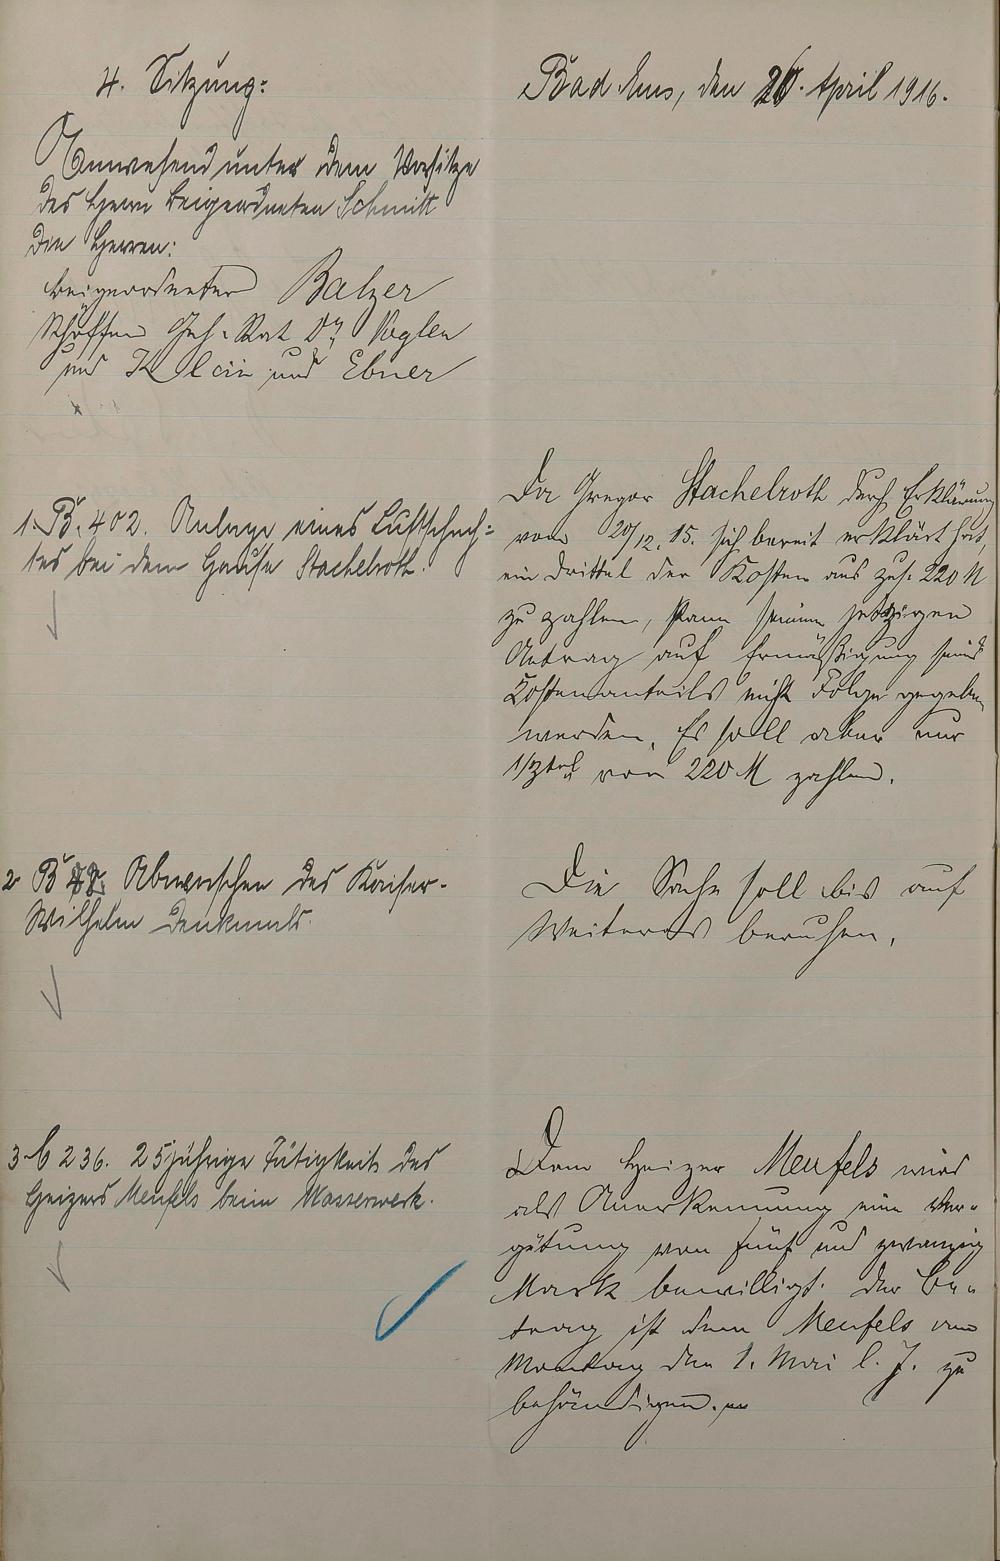 4. Sitzung:
Bad Ems, den 20. April 1916.
Anwesend unter dem Vorsitze
des Herrn Beigeordneten Schmitt
die Herren:
Beigeordneter Balzer
Schöffen Geh. Rat Dr. Vogler
und Klein und Ebner
1. B. 402. Anlage eines Luftschach-
tes bei dem Hause Stachelroth.
Da Gregor Stachelroth durch Erklärung
vom 20/12. 15. sich bereit erklärt hat,
ein Drittel der Kosten aus zus. 220 M
zu zahlen, kann seinem jetzigen
Antrag auf Ermäßigung seines
Kostenanteils nicht Folge gegeben
werden. Es soll aber nur
1/3tel von 220 M zahlen.
2 B Abwaschen des Kaiser-
Wilhelm Denkmals.
Die Sache soll bis auf
Weiteres beruhen.
3. C 236. 25jährige Tätigkeit des
Heizers Meufels beim Wasserwerk.
Dem Heizer Meufels wird
als Anerkennung eine Ver-
gütung von fünf und zwanzig
Mark bewilligt. Der Be-
trag ist dem Meufels am
Montag den 1. Mai l. J. zu
behändigen.